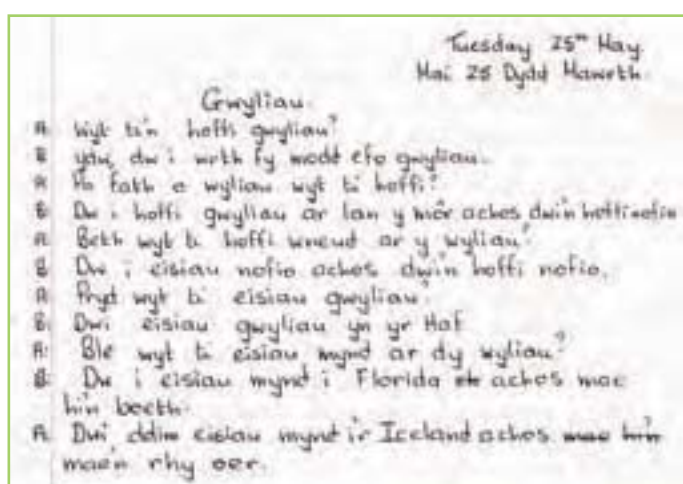 Tuesday 25th May.
Mai 25 Dydd Mawrth.
Gwyliau.
A: Wyt ti'n hoffi gwyliau?
B: ydw, dw i wrth fy modd efo gwyliau.
A: Pa fath o wyliau wyt ti hoffi?
B: Dw i hoffi gwyliau ar lan y môr achos dwi'n hoffi nofio
A: Beth wyt ti hoffi wneud ar y wyliau?
B: Dw i eisiau nofio achos dwi'n hoffi nofio.
A: Pryd wyt ti eisiau gwyliau?
B: Dwi eisiau gwyliau yn yr Haf
A: Ble wyt ti eisiau mynd ar dy wyliau?
B: Dw i eisiau mynd i Florida achos mae
hi'n boeth.
A: Dwi ddim eisiau mynd i'r Iceland achos mae hi'n
mae'n rhy oer.